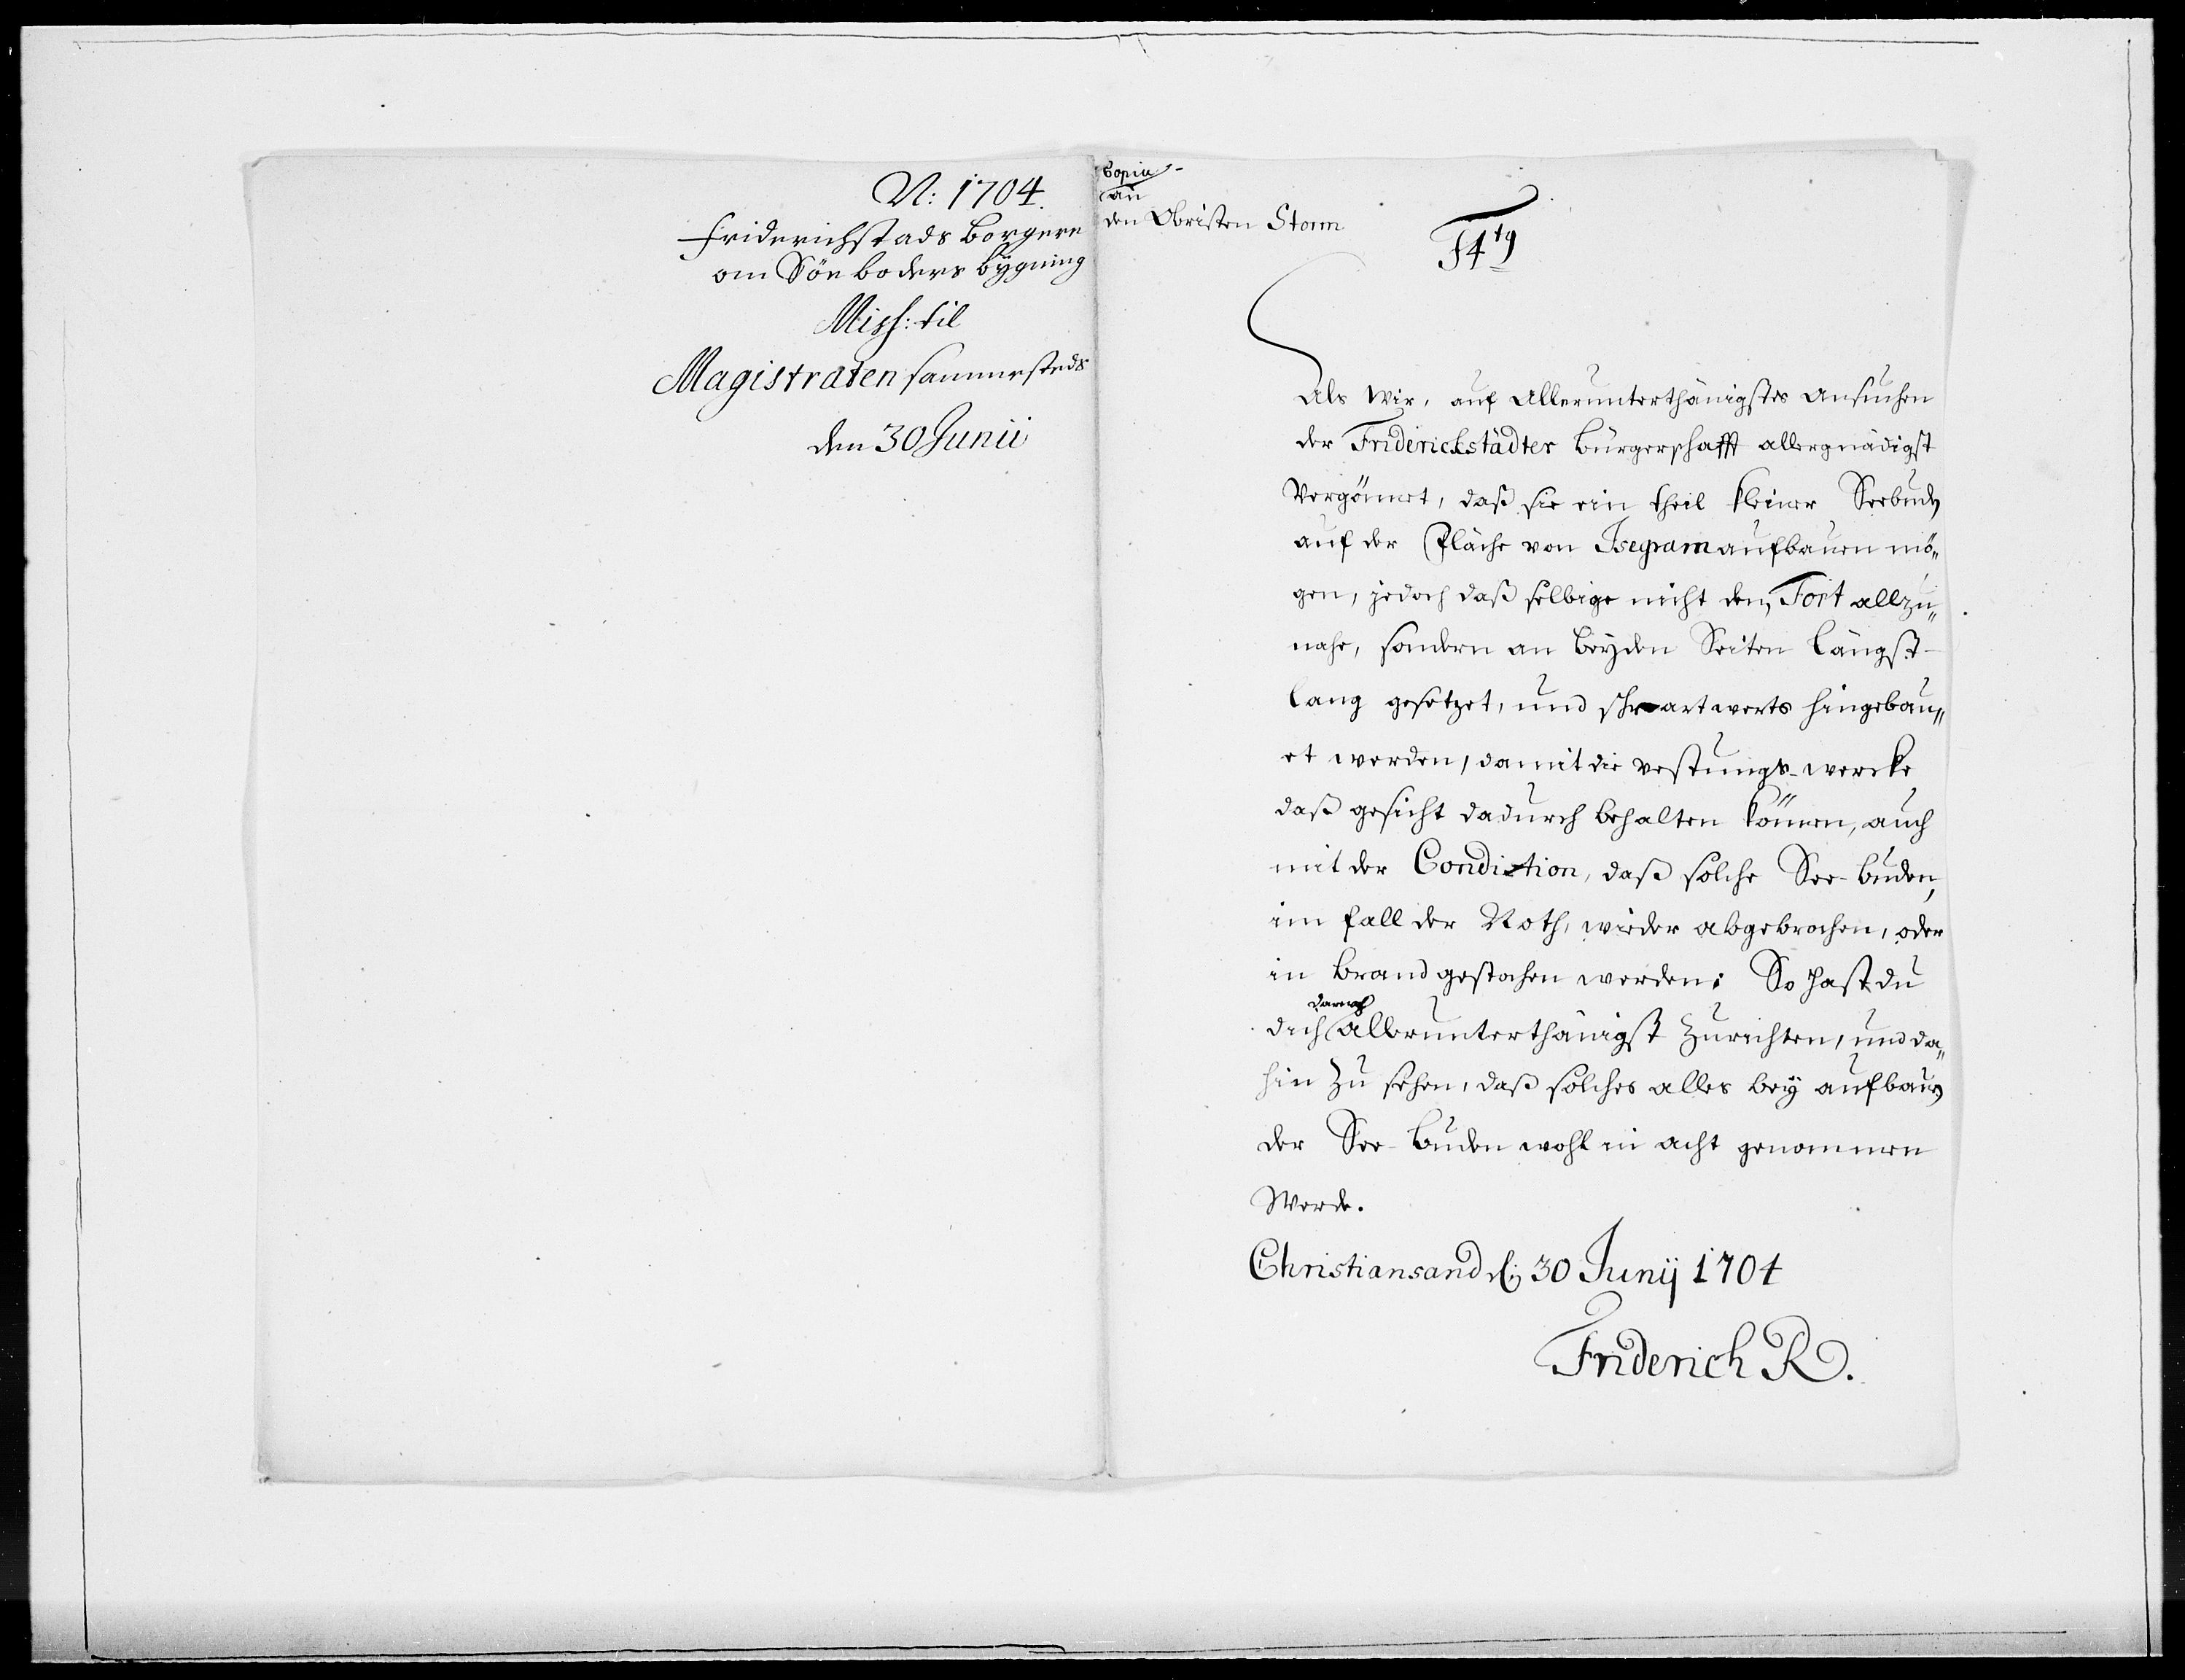 N: 1704.
Friderichstads Borgere
om Söe boders bÿgning
Miss: til
Magistraten sammesteds
den 30 Junii
Copia
an
den Obristen Storm
F4tg
Als Wir, auf Allerunterthänigstes Ansuchen
der Friderichstädter Bürgerschafft allergnädigst
Vergönnet, daß sie ein theil kleiner Seebuden
auf der Fläche von Isegram aufbauen mö„
gen, jedoch daß selbige nicht dem Fort allzu„
nahe, sondern an beyden Seiten längst-
lang gesetzet, und werts hingebau„
et werden, damit die vestungs-wercke
daß gesicht dadurch behalten können, auch
mit der Condition, daß solche See-buden,
im fall der Noth, wieder abgebrochen, oder
in brand gestochen werden: So hast du
dich darnach allerunterthänigst zu richten, und da„
hin zu sehen, daß solches alles beÿ aufbauung
der See-buden wohl in acht genommen
Werde.
Christiansand d: 30 Junij 1704
Friderich R.